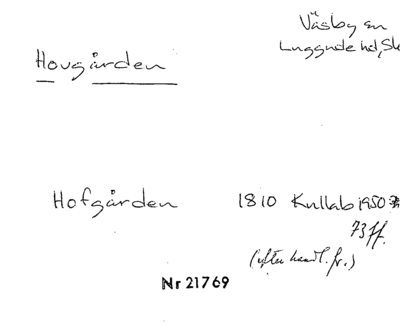 Väsby sn
Luggude hd, Sk
Hovgården
Hofgården 1810 Kullab 1950
73 ff.
(efter handl. fr.)
Nr 21769